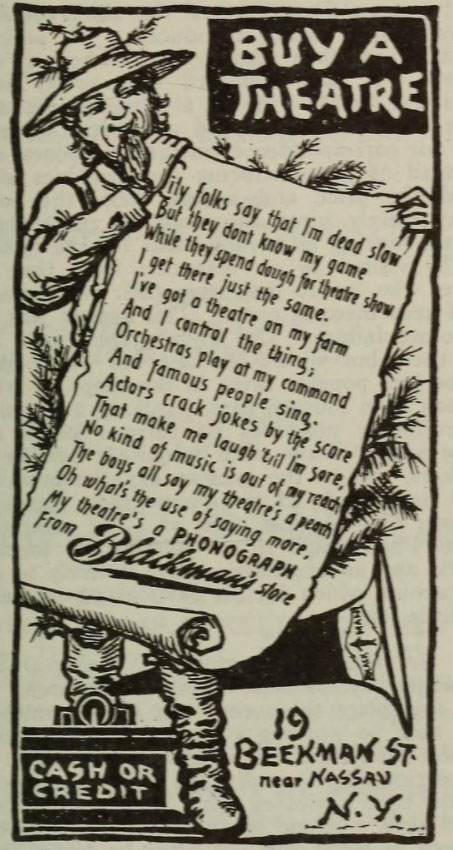 BUY A
THEATRE
City folks say that I'm dead slow
But they dont know my game
While they spend dough for theatre show
I get there just the same.
I've got a theatre on my farm
And I control the thing;
Orchestras play at my command
And famous people sing.
Actors crack jokes by the score
That make me laugh 'till I'm sore,
No kind of music is out of my reach
The boys all say my theatre's a peach
Oh what's the use of saying more,
My theatre's a PHONOGRAPH
From Blackman's store
19
BEEKMAN ST.
near NASSAU
N.Y.
CASH OR
CREDIT